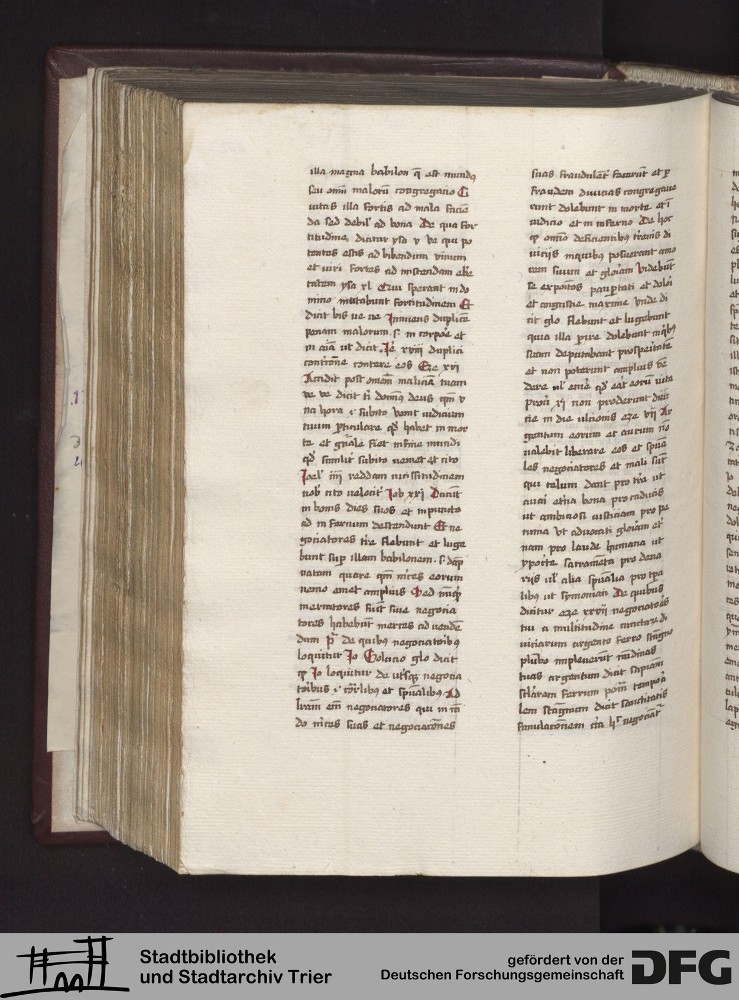 illa magna babilon q̄ est mundꝯ
seu omīm malorū congregacio C
uitas illa fortis ad mala faciē
da sed debil' ad bona De qua for
titudine dicitur ysa v ve qui po
tentes estis ad bibendum vinum
et viri fortes ad miscendam ebrie
tatem ysa xl Qui sperant in do
mino mutabunt fortitudinem Et
dicit bis ve ve Innuens duplicē
penam malorum .s. in corpore et
in aīa ut dicit Je xviii duplici
contricōne contere eos Eze xvi
Accidit post omnem maliciā tuam
ve ve dicit tī dominꝰ deus qm̄ v
na hora .i. subito venit iudicium
tuum ꝑticulare qd̓ habet in mor
te et gn̄ale fiet in fine mundi
qd̓ similiter subito veniet et cito
Joel' iii reddam vicissitudinem
vob̓ cito velocit̓ Job xxi Ducūt
in bonis dies suos et in puncto
ad infernum descendunt Et ne
gociatores tr̄e flebunt et luge
bunt suꝑ illam babilonem .s. dāp
natam quare qm̄ mīces eorum
nemo emet amplius Sed nūq̓
mercatores siue negocia
tores habebūt merces ad vendē
dum de quibꝯ negociatoribꝯ
loquitur Jo Solucio glo dicit
ꝙ Jo loquitur de utrisqꝫ negocia
toribus .i. tꝑalibꝯ et spūalibꝯ Ad
lr̄am em̄ negociatores qui in mū
do mīces suas et negociacōnes
suas fraudulēt̓ fecerūt et ꝑ
fraudem diuicias congregaue
runt dolebunt in morte et ī
iudicio et in inferno De hoc
ꝙ omīo deficientibꝯ terrenis di
uiciis in quibꝯ posuerant amo
rem suum et gloiam videbūt
se expositos paupertati et dolori
et angustie maxime vnde di
cit glo flebunt et lugebunt
quia illa perire dolebant in qͥbꝯ
suam deputabant prosperitatē
et non poterunt amplius vē
dere ul' emē qd̓ erat eorū vita
prou̓ xi non proderunt diui
cie in die ulcionis eze vii Ar
gentum eorum et aurum nō
valebit liberare eos et spūa
les negociatores et mali sūt
qui celum dant pro tr̄a ut
auari etn̄a bona pro caducis
ut ambiciosi iusticiam pro pe
cunia ut aduocati gloiam et̓
nam pro laude humana ut
ypocrite sacrameta pro dena
riis ul' alia spūalia pro tꝑa
libꝯ ut symoniaci De quibꝯ
dicitur eze xxvii negociatores
tui a multitudine cunctarū di
uiciarum argento ferro stagno
plūbo impleuerūt nūdinas
tuas argentum dicit sapiam
sclārem ferrum potēciam tempora
lem stagnum dicit sanctitatis
simulacōnem negociāt̓
Stadtbibliothek
und Stadtarchiv Trier
gefördert von der
Deutschen Forschungsgemeinschaft
DFG